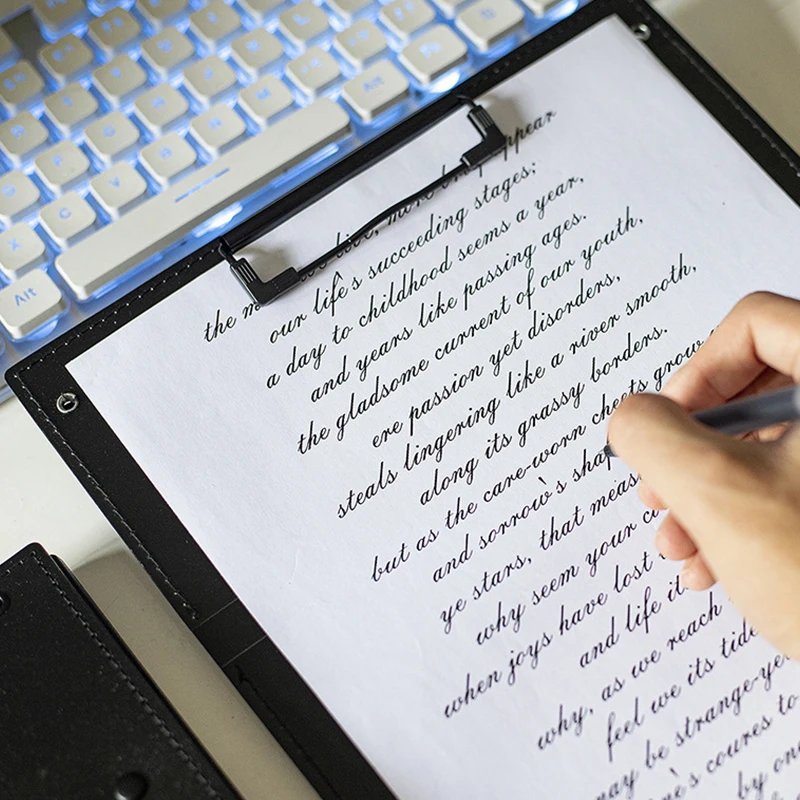 N M Alt
X C V
Alt
the we live, more appear
our life's succeeding stages;
a day to childhood seems a year,
and years like passing ages.
the gladsome current of our youth,
ere passion yet disorders,
steals lingering like a river smooth,
along its grassy borders.
but as the care-worn cheets grow
and sorrow's
ye stars, that
why seem your
when joys have lost
and life
why, as we reach
feel we its
may be
coures to
by